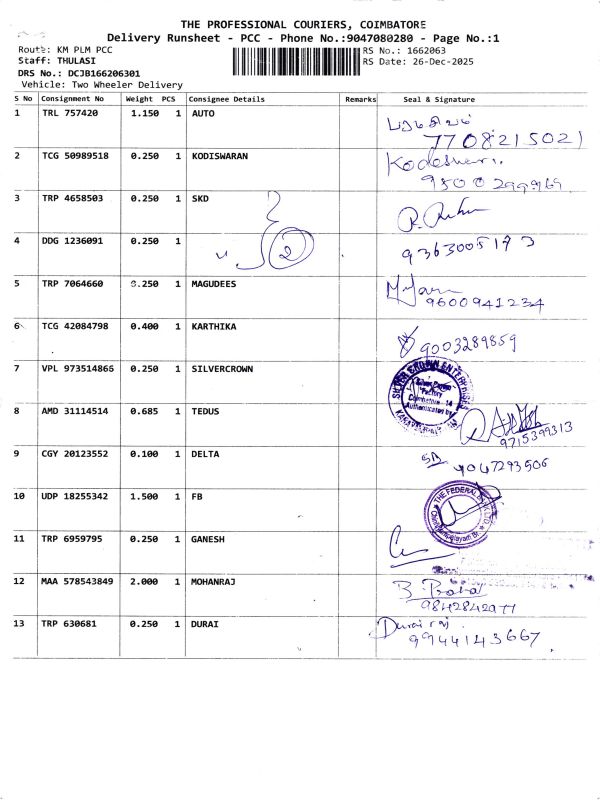 THE PROFESSIONAL COURIERS, COIMBATORE
Delivery Runsheet - PCC - Phone No.:9047080280 - Page No.:1
Route: KM PLM PCC
RS No.: 1662063
Staff: THULASI
RS Date: 26-Dec-2025
DRS No.: DCJB166206301
Vehicle: Two Wheeler Delivery
S No Consignment No Weight PCS Consignee Details Remarks Seal & Signature
1 TRL 757420 1.150 1 AUTO
7708215021
2 TCG 50989518 0.250 1 KODISWARAN
3 TRP 4658503 0.250 1 SKD
4 DDG 1236091 0.250 1 2
9363005173
5 TRP 7064660 0.250 1 MAGUDEES
9600941234
6 TCG 42084798 0.400 1 KARTHIKA
9003289859
7 VPL 973514866 0.250 1 SILVERCROWN
Silver Crown
Factory
Coimbatore - 14
Authenticated by
8 AMD 31114514 0.685 1 TEDUS
9715399313
9 CGY 20123552 0.100 1 DELTA
9047293506
10 UDP 18255342 1.500 1 FB
THE FEDERAL BANK LTD.
11 TRP 6959795 0.250 1 GANESH
12 MAA 578543849 2.000 1 MOHANRAJ
13 TRP 630681 0.250 1 DURAI
Durai raj
9944143667